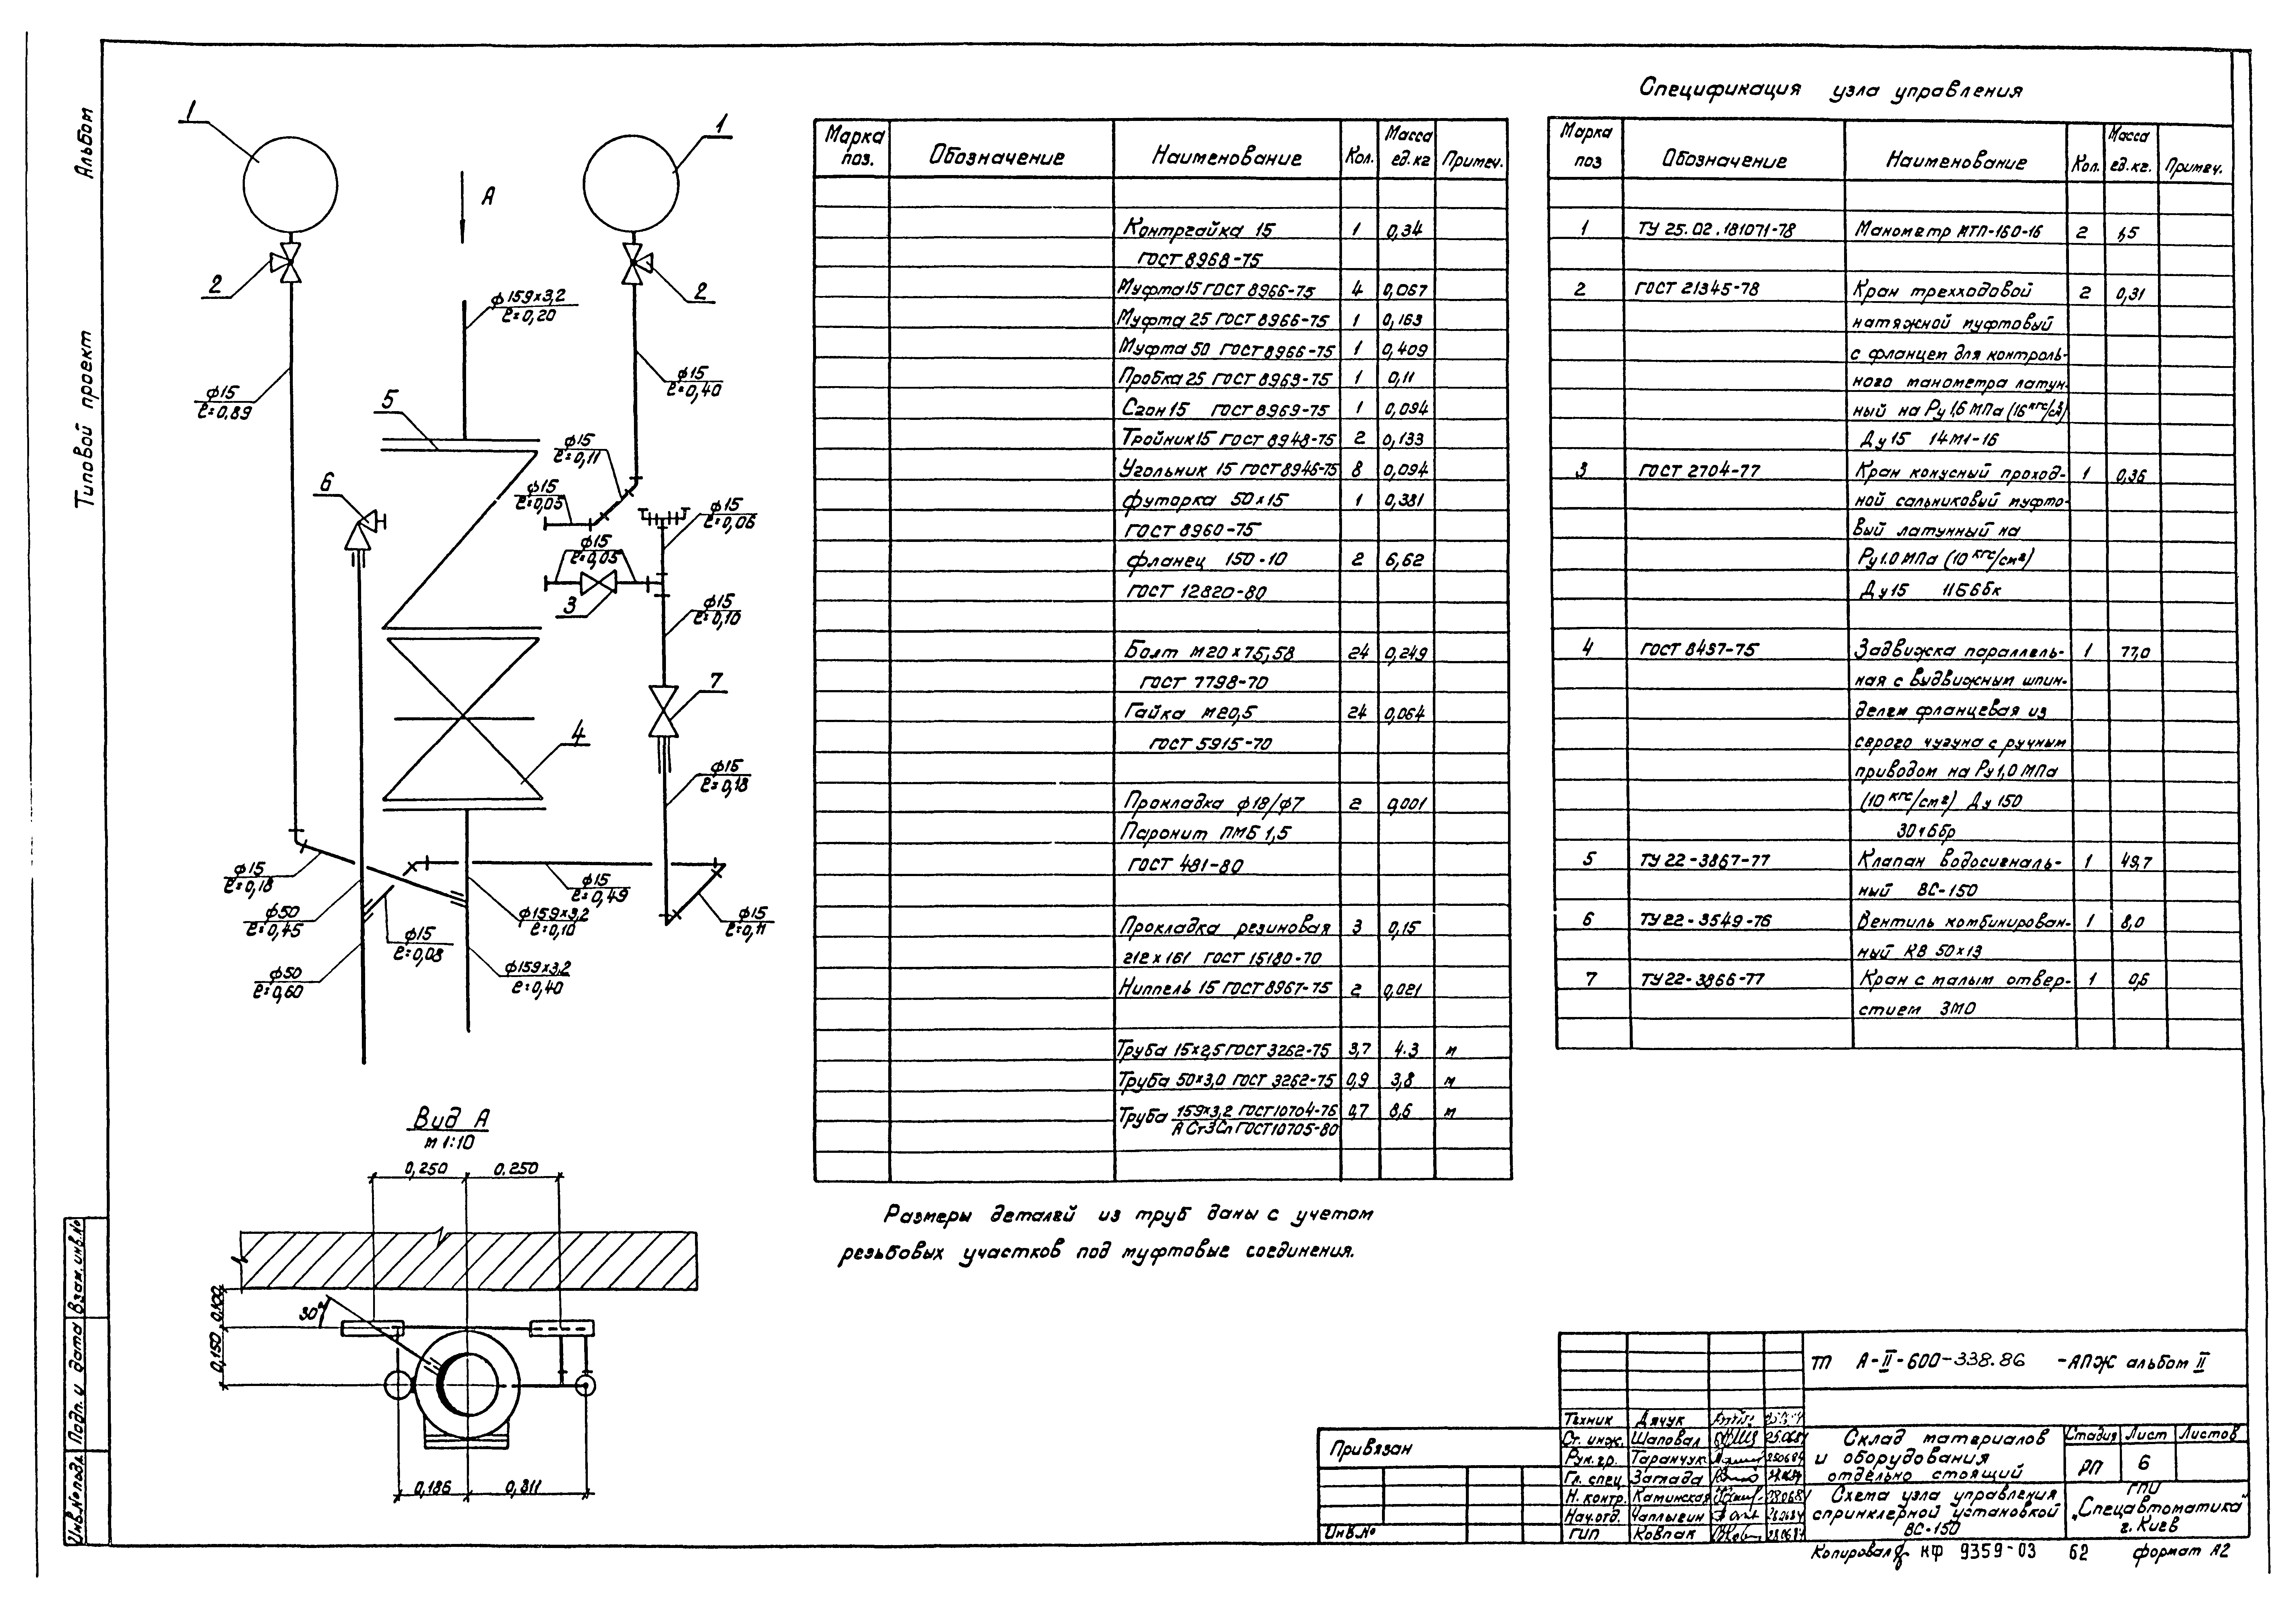 Альбом
Типовой проект
Взам. инв.№
Подп. и дата
Инв.№ подл.
1
1
2
2
А
ф159х3,2
ℓ=0,20
ф15
ℓ=0,89
ф15
ℓ=0,40
5
ф15
ℓ=0,11
ф15
ℓ=0,05
ф15
ℓ=0,06
6
ф15
ℓ=0,05
3
ф15
ℓ=0,10
7
4
ф15
ℓ=0,18
ф15
ℓ=0,18
ф15
ℓ=0,49
ф50
ℓ=0,45
ф159х3,2
ℓ=0,10
ф15
ℓ=0,11
ф15
ℓ=0,08
ф50
ℓ=0,60
ф159х3,2
ℓ=0,40
Вид А
м 1:10
0,250 0,250
30°
0,100
0,150
0,186 0,311
Марка поз. Обозначение Наименование Кол. Масса ед.кг Примеч.
Контргайка 15 1 0,34
ГОСТ 8968-75
Муфта 15 ГОСТ 8966-75 4 0,067
Муфта 25 ГОСТ 8966-75 1 0,163
Муфта 50 ГОСТ 8966-75 1 0,409
Пробка 25 ГОСТ 8963-75 1 0,11
Сгон 15 ГОСТ 8969-75 1 0,094
Тройник 15 ГОСТ 8948-75 2 0,133
Угольник 15 ГОСТ 8946-75 8 0,094
футорка 50х15 1 0,381
ГОСТ 8960-75
фланец 150-10 2 6,62
ГОСТ 12820-80
Болт М20х75,58 24 0,249
ГОСТ 7798-70
Гайка М20,5 24 0,064
ГОСТ 5915-70
Прокладка ф18/ф7 2 0,001
Паронит ПМБ 1,5
ГОСТ 481-80
Прокладка резиновая 3 0,15
212х161 ГОСТ 15180-70
Ниппель 15 ГОСТ 8967-75 2 0,021
Труба 15х2,5 ГОСТ 3262-75 3,7 4.3 м
Труба 50х3,0 ГОСТ 3262-75 0,9 3,8 м
Труба 159х3,2 ГОСТ 10704-76 0,7 8,6 м
А Ст3Сп ГОСТ 10705-80
Размеры деталей из труб даны с учетом
резьбовых участков под муфтовые соединения.
Спецификация узла управления
Марка поз Обозначение Наименование Кол. Масса ед.кг. Примеч.
1 ТУ 25.02.181071-78 Манометр МТП-160-16 2 1,5
2 ГОСТ 21345-78 Кран трехходовой 2 0,31
натяжной муфтовый
с фланцем для контроль-
ного манометра латун-
ный на Ру 1,6 МПа (16 кгс/см²)
Ду 15 14М1-16
3 ГОСТ 2704-77 Кран конусный проход- 1 0,36
ной сальниковый муфто-
вый латунный на
Ру 1.0 МПа (10 кгс/см²)
Ду 15 11Б6бк
4 ГОСТ 8437-75 Задвижка параллель- 1 77,0
ная с выдвижным шпин-
делем фланцевая из
серого чугуна с ручным
приводом на Ру 1,0 МПа
(10 кгс/см²) Ду 150
30ч6бр
5 ТУ 22-3867-77 Клапан водосигналь- 1 49,7
ный ВС-150
6 ТУ 22-3549-76 Вентиль комбинирован- 1 8,0
ный КВ 50х13
7 ТУ 22-3866-77 Кран с малым отвер- 1 0,6
стием ЗМО
ТП А-II-600-338.86 -АПЖ альбом II
Техник Дячук
Ст. инж. Шаповал 25.06.84
Рук. гр. Таранчук 25.06.84
Гл. спец. Заглада
Н. контр. Каминская 28.06.84
Нач. отд. Чаплыгин 28.06.84
ГИП Ковпак 28.06.84
Склад материалов
и оборудования
отдельно стоящий
Стадия Лист Листов
РП 6
Схема узла управления
спринклерной установкой
ВС-150
ГПИ
„Спецавтоматика"
г. Киев
Привязан
Инв.№
Копировал КФ 9359-03 62 формат А2